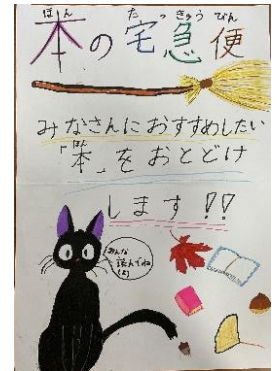 ほん たっきゅうびん
本の宅急便
みなさんにおすすめしたい
ほん
「本」をおとどけ
します!!
みんな
読んでね